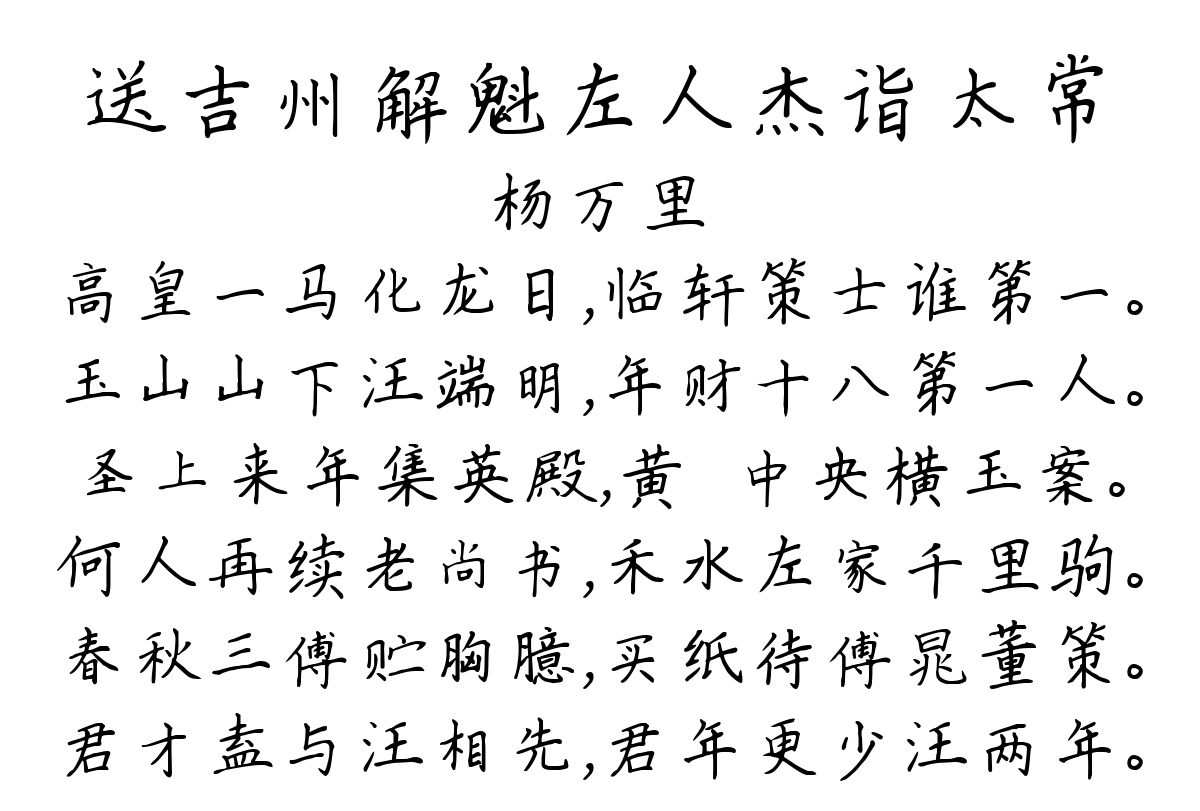 送吉州解魁左人杰诣太常
杨万里
高皇一马化龙日,临轩策士谁第一。
玉山山下汪端明,年财十八第一人。
圣上来年集英殿,黄 中央横玉案。
何人再续老尚书,禾水左家千里驹。
春秋三傅贮胸臆,买纸待傅晁董策。
君才盍与汪相先,君年更少汪两年。